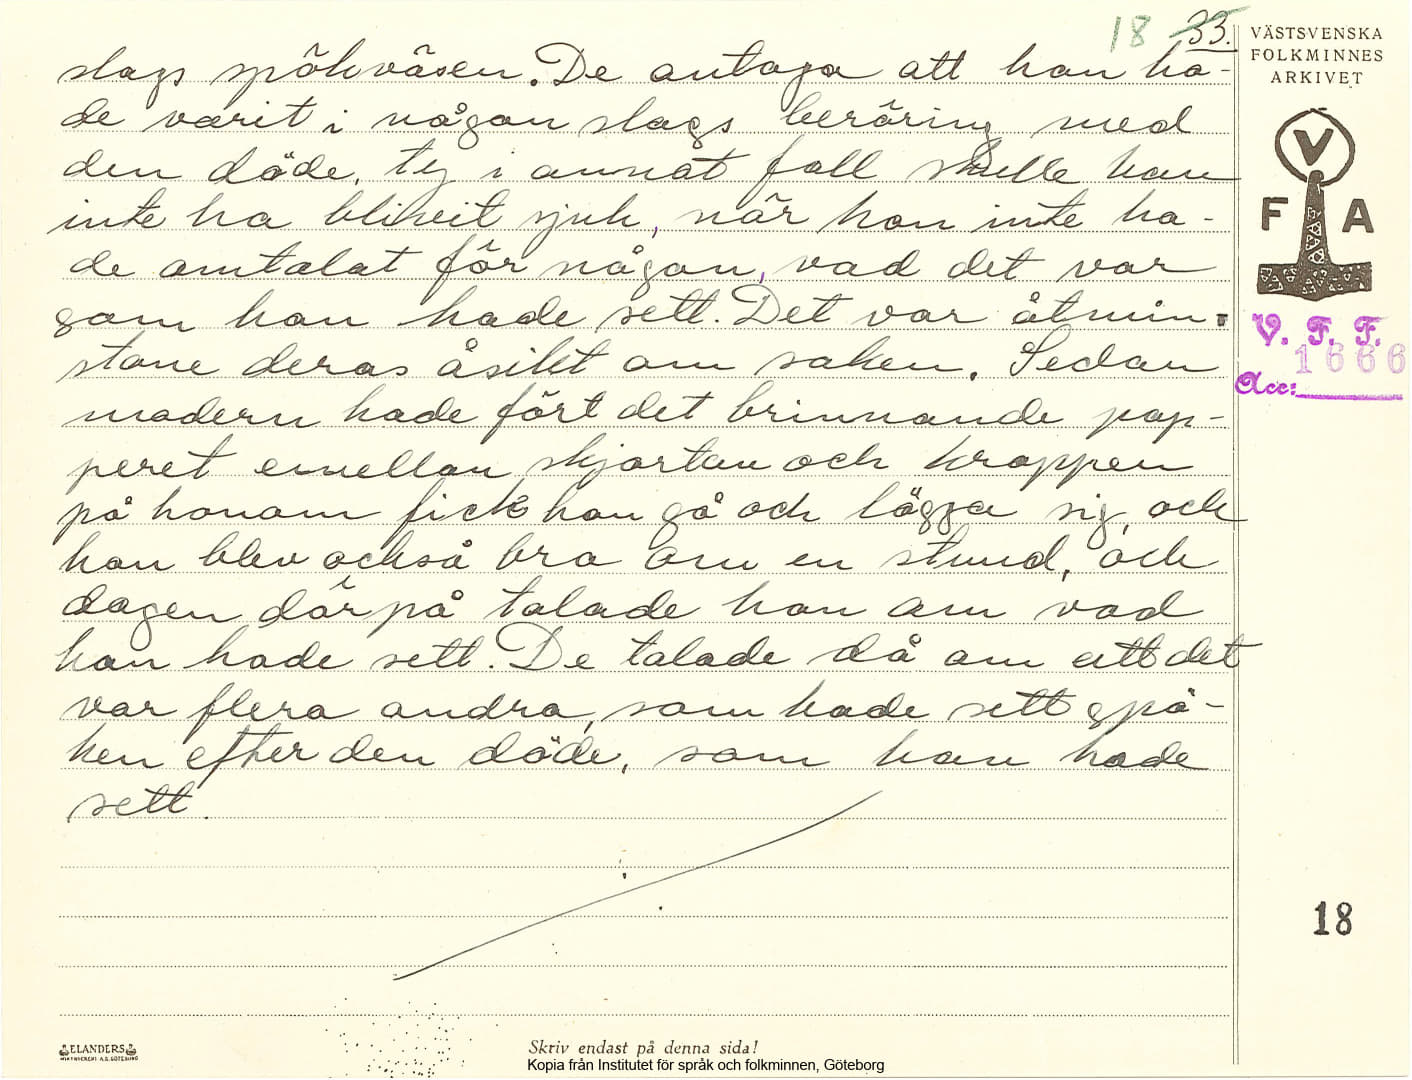 18 33.
slags spökväsen. De antaga att han ha-
de varit i någon slags beröring med
den döde, ty i annat fall skulle han
inte ha blivit sjuk, när han inte ha-
de omtalat för någon, vad det var
som han hade sett. Det var åtmin-
stone deras åsikt om saken. Sedan
modern hade fört det brinnande pap-
peret emellan skjortan och kroppen
på honom fick han gå och lägga sig, och
han blev också bra om en stund, och
dagen där på talade han om vad
han hade sett. De talade då om att det
var flera andra, som hade sett spö-
ken efter den döde, som han hade
sett.
VÄSTSVENSKA
FOLKMINNES
ARKIVET
V
F A
V. F. F.
1666
Acc:
18
ELANDERS
Skriv endast på denna sida!
Kopia från Institutet för språk och folkminnen, Göteborg